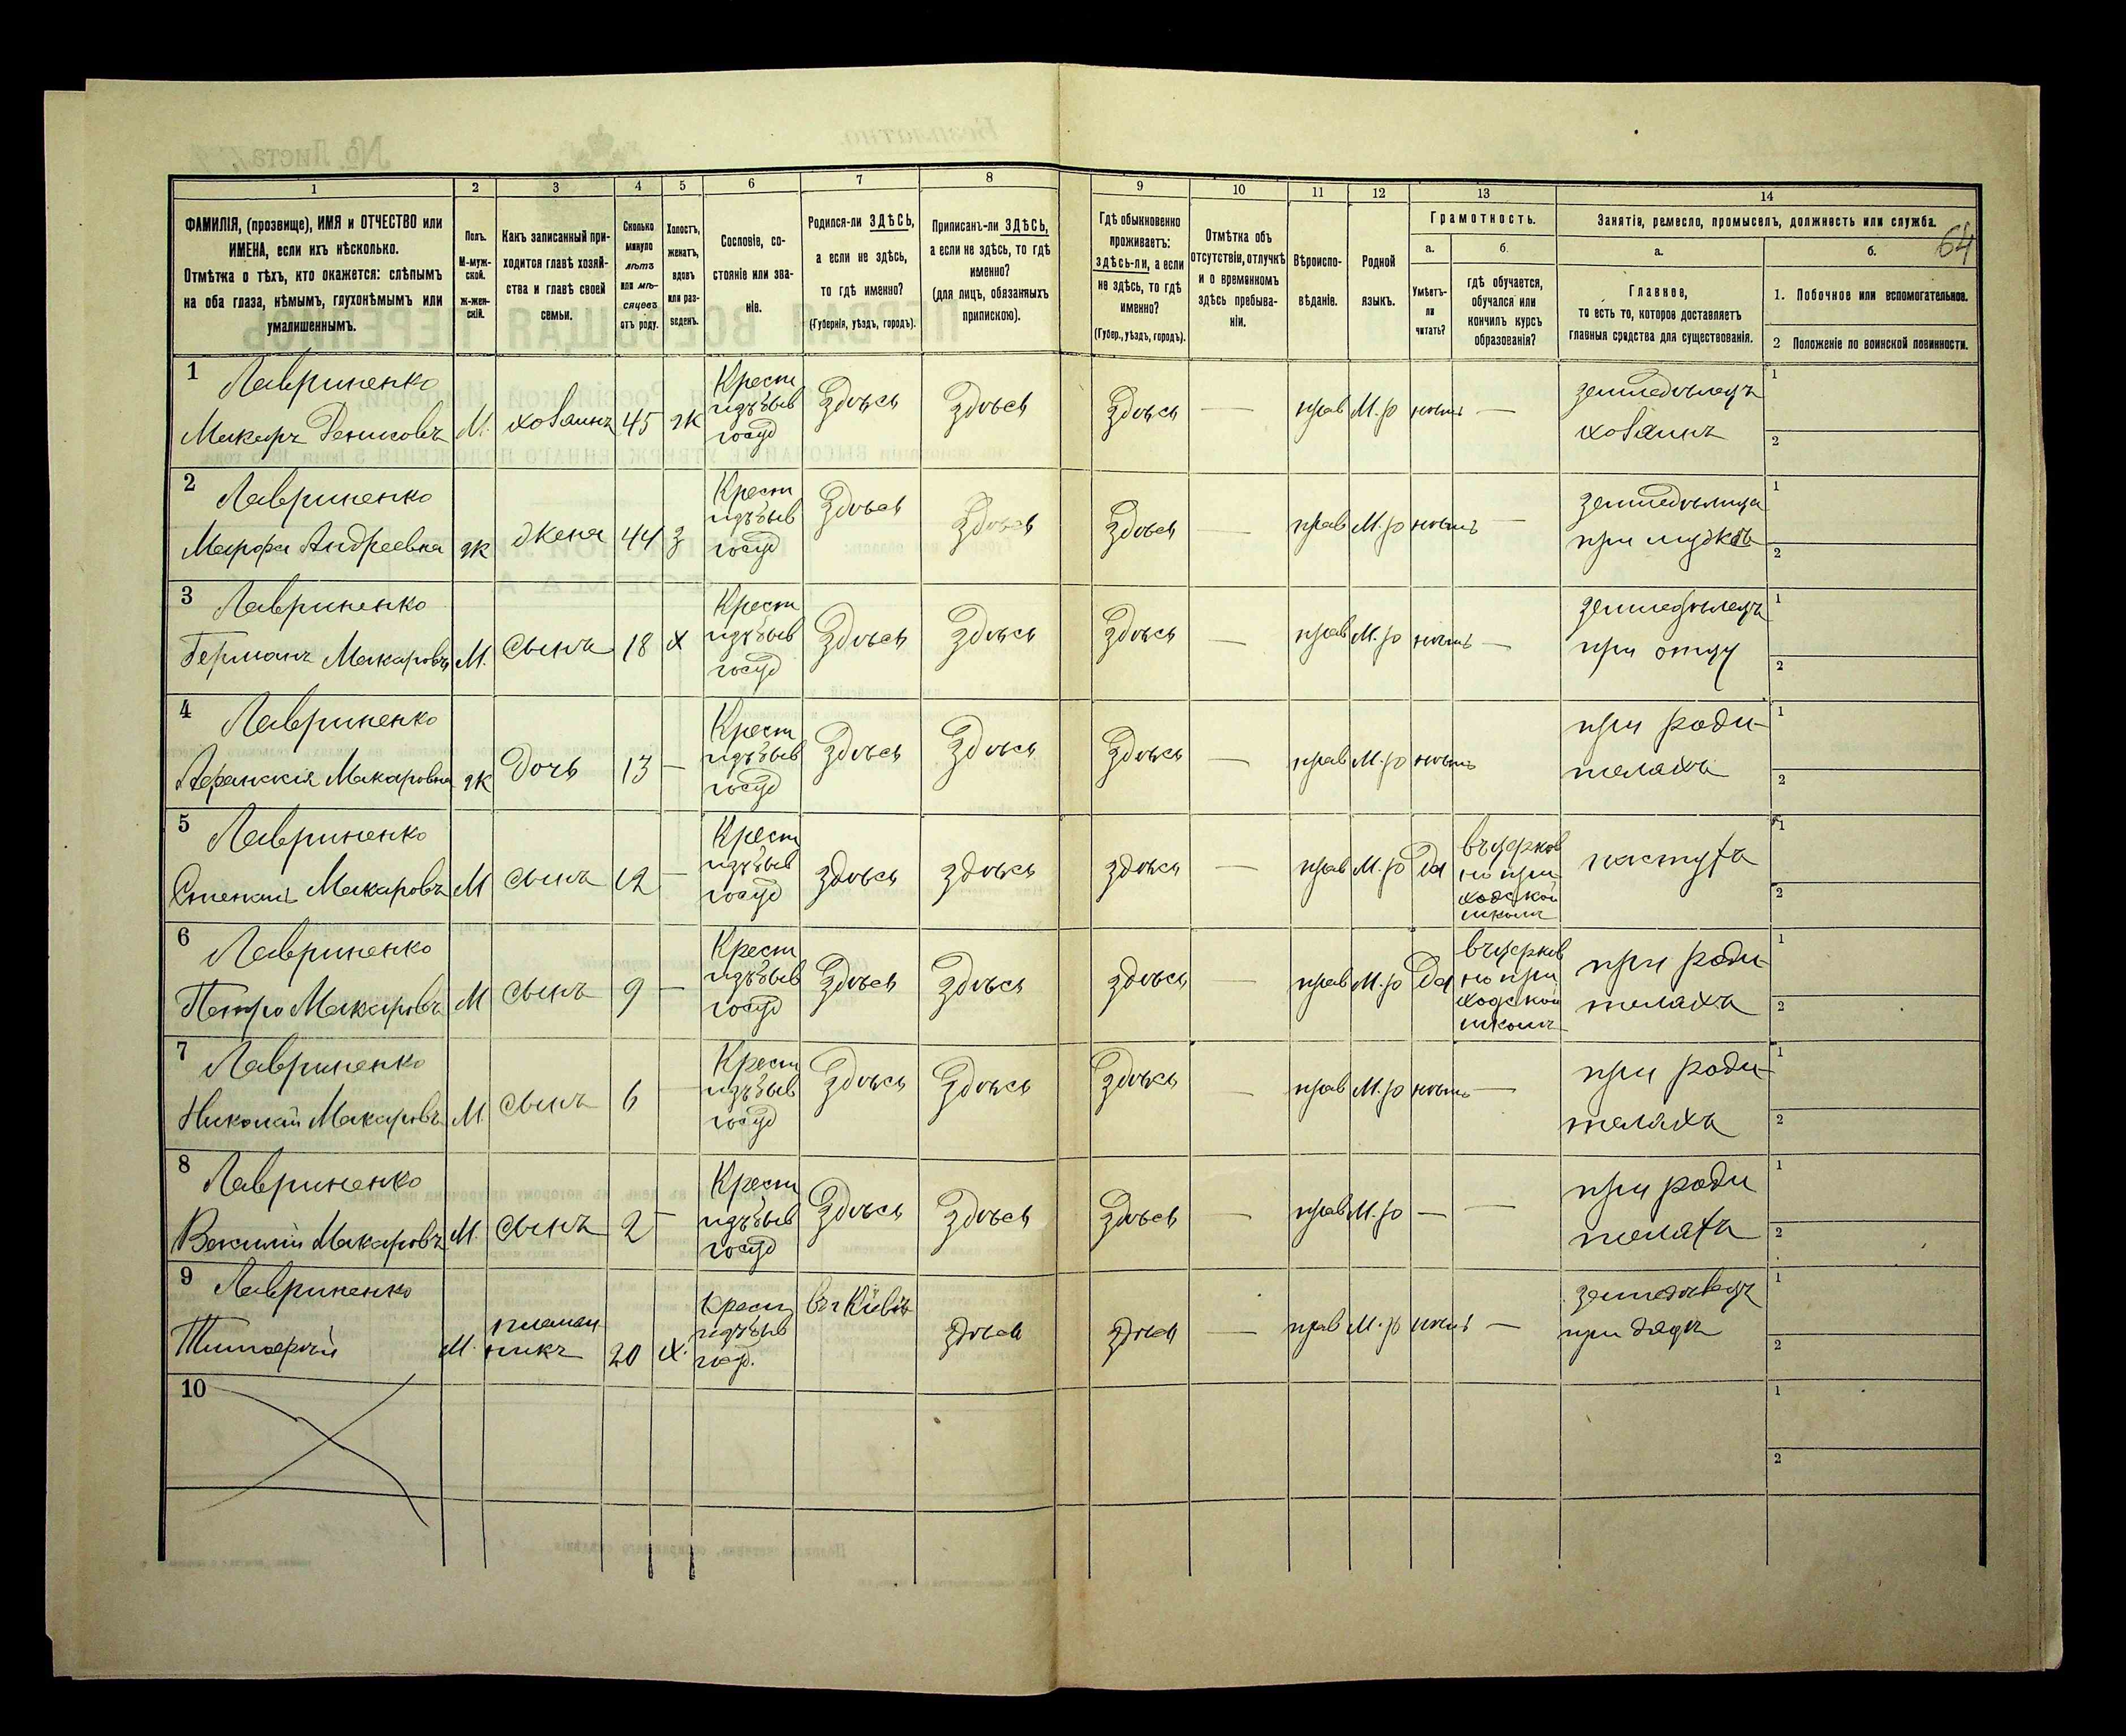 64
1 2 3 4 5 6 7 8 9 10 11 12 13 14
ФАМИЛІЯ, (прозвище), ИМЯ и ОТЧЕСТВО или ИМЕНА, если ихъ нѣсколько.
Отмѣтка о тѣхъ, кто окажется: слѣпымъ на оба глаза, нѣмымъ, глухонѣмымъ или умалишеннымъ.
Полъ. М-муж-ской. Ж-жен-скій.
Какъ записанный при-ходится главѣ хозяй-ства и главѣ своей семьи.
Сколько минуло лѣтъ или мѣ-сяцевъ отъ роду.
Холостъ, женатъ, вдовъ или раз-веденъ.
Сословіе, со-стояніе или зва-ніе.
Родился-ли ЗДѢСЬ, а если не здѣсь, то гдѣ именно? (Губернія, уѣздъ, городъ).
Приписанъ-ли ЗДѢСЬ, а если не здѣсь, то гдѣ именно? (для лицъ, обязанныхъ припискою).
Гдѣ обыкновенно проживаетъ: здѣсь-ли, а если не здѣсь, то гдѣ именно? (Губер., уѣздъ, городъ).
Отмѣтка объ отсутствіи, отлучкѣ и о временномъ здѣсь пребыва-ніи.
Вѣроиспо-вѣданіе.
Родной языкъ.
Грамотность.
а. Умѣетъ-ли читать?
б. гдѣ обучается, обучался или кончилъ курсъ образованія?
Занятія, ремесло, промыселъ, должность или служба.
а. Главное, то есть то, которое доставляетъ главныя средства для существованія.
б. 1. Побочное или вспомогательное.
2 Положеніе по воинской повинности.
1 Лавриненко Макаръ Денисовъ М. хозяинъ 45 ж Крест изъ быв госуд Здѣсь Здѣсь Здѣсь — прав М.р нѣтъ — земледѣлецъ хозяинъ 1 2
2 Лавриненко Марфа Андреевна ж жена 44 з Крест изъ быв госуд Здѣсь Здѣсь Здѣсь — прав М.р нѣтъ — земледѣлица при мужѣ 1 2
3 Лавриненко Германъ Макаровъ М. сынъ 18 х Крест изъ быв госуд Здѣсь Здѣсь Здѣсь — прав М.р нѣтъ — земледѣлецъ при отцу 1 2
4 Лавриненко Макаровна ж дочь 13 — Крест изъ быв госуд Здѣсь Здѣсь Здѣсь — прав М.р нѣтъ при роди-теляхъ 1 2
5 Лавриненко Степанъ Макаровъ М сынъ 12 — Крест изъ быв госуд здѣсь здѣсь здѣсь — прав М.р Да въ церков но при ходской школѣ пастухъ 1 2
6 Лавриненко Петро Макаровъ М сынъ 9 — Крест изъ быв госуд Здѣсь Здѣсь здѣсь — прав М.р Да въ церков но при ходской школѣ при роди-теляхъ 1 2
7 Лавриненко Николай Макаровъ М. сынъ 6 — Крест изъ быв госуд Здѣсь Здѣсь Здѣсь — прав М.р нѣтъ — при роди-теляхъ 1 2
8 Лавриненко Василій Макаровъ М. сынъ 2 — Крест изъ быв госуд Здѣсь Здѣсь Здѣсь — прав М.р — — при роди теляхъ 1 2
9 Лавриненко Тимофѣй М. племян никъ 20 х. Крест изъ быв гос. въ г Кіевѣ здѣсь здѣсь — прав М.р нѣтъ — земледѣлецъ при дядѣ 1 2
10 1 2